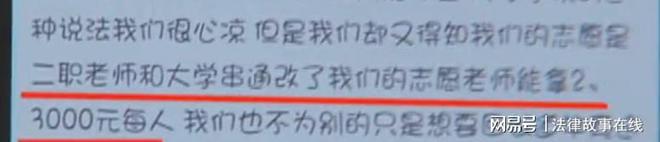 种说法我们很心凉 但是我们却又得知我们的志愿是
二职老师和大学串通改了我们的志愿老师能拿2、
3000元每人 我们也不为别的只是想要回
网易号 | 法律故事在线